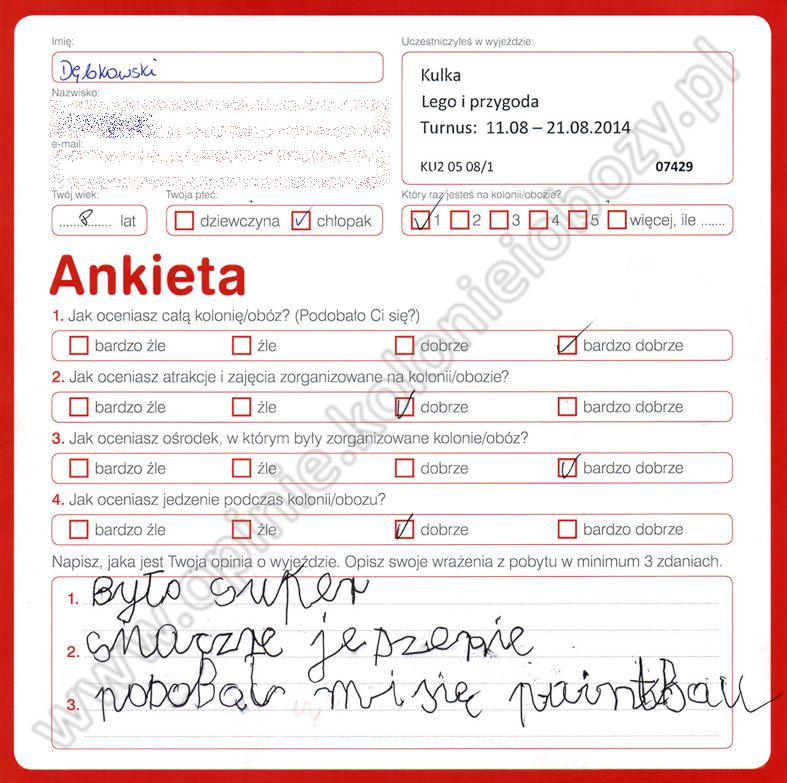 Imię:
Uczestniczyłeś w wyjeździe:
Dębkowski
Kulka
Lego i przygoda
Turnus: 11.08 – 21.08.2014
KU2 05 08/1 07429
Nazwisko:
e-mail:
Twój wiek:
Twoja płeć:
Który raz jesteś na kolonii/obozie?
......8...... lat
dziewczyna chłopak
1 2 3 4 5 więcej, ile ......
Ankieta
1. Jak oceniasz całą kolonię/obóz? (Podobało Ci się?)
bardzo źle źle dobrze bardzo dobrze
2. Jak oceniasz atrakcje i zajęcia zorganizowane na kolonii/obozie?
bardzo źle źle dobrze bardzo dobrze
3. Jak oceniasz ośrodek, w którym były zorganizowane kolonie/obóz?
bardzo źle źle dobrze bardzo dobrze
4. Jak oceniasz jedzenie podczas kolonii/obozu?
bardzo źle źle dobrze bardzo dobrze
Napisz, jaka jest Twoja opinia o wyjeździe. Opisz swoje wrażenia z pobytu w minimum 3 zdaniach.
1. Było super
2. smaczne jedzenie
3. podobał mi się paintball
www.opinie.kolonieiobozy.pl